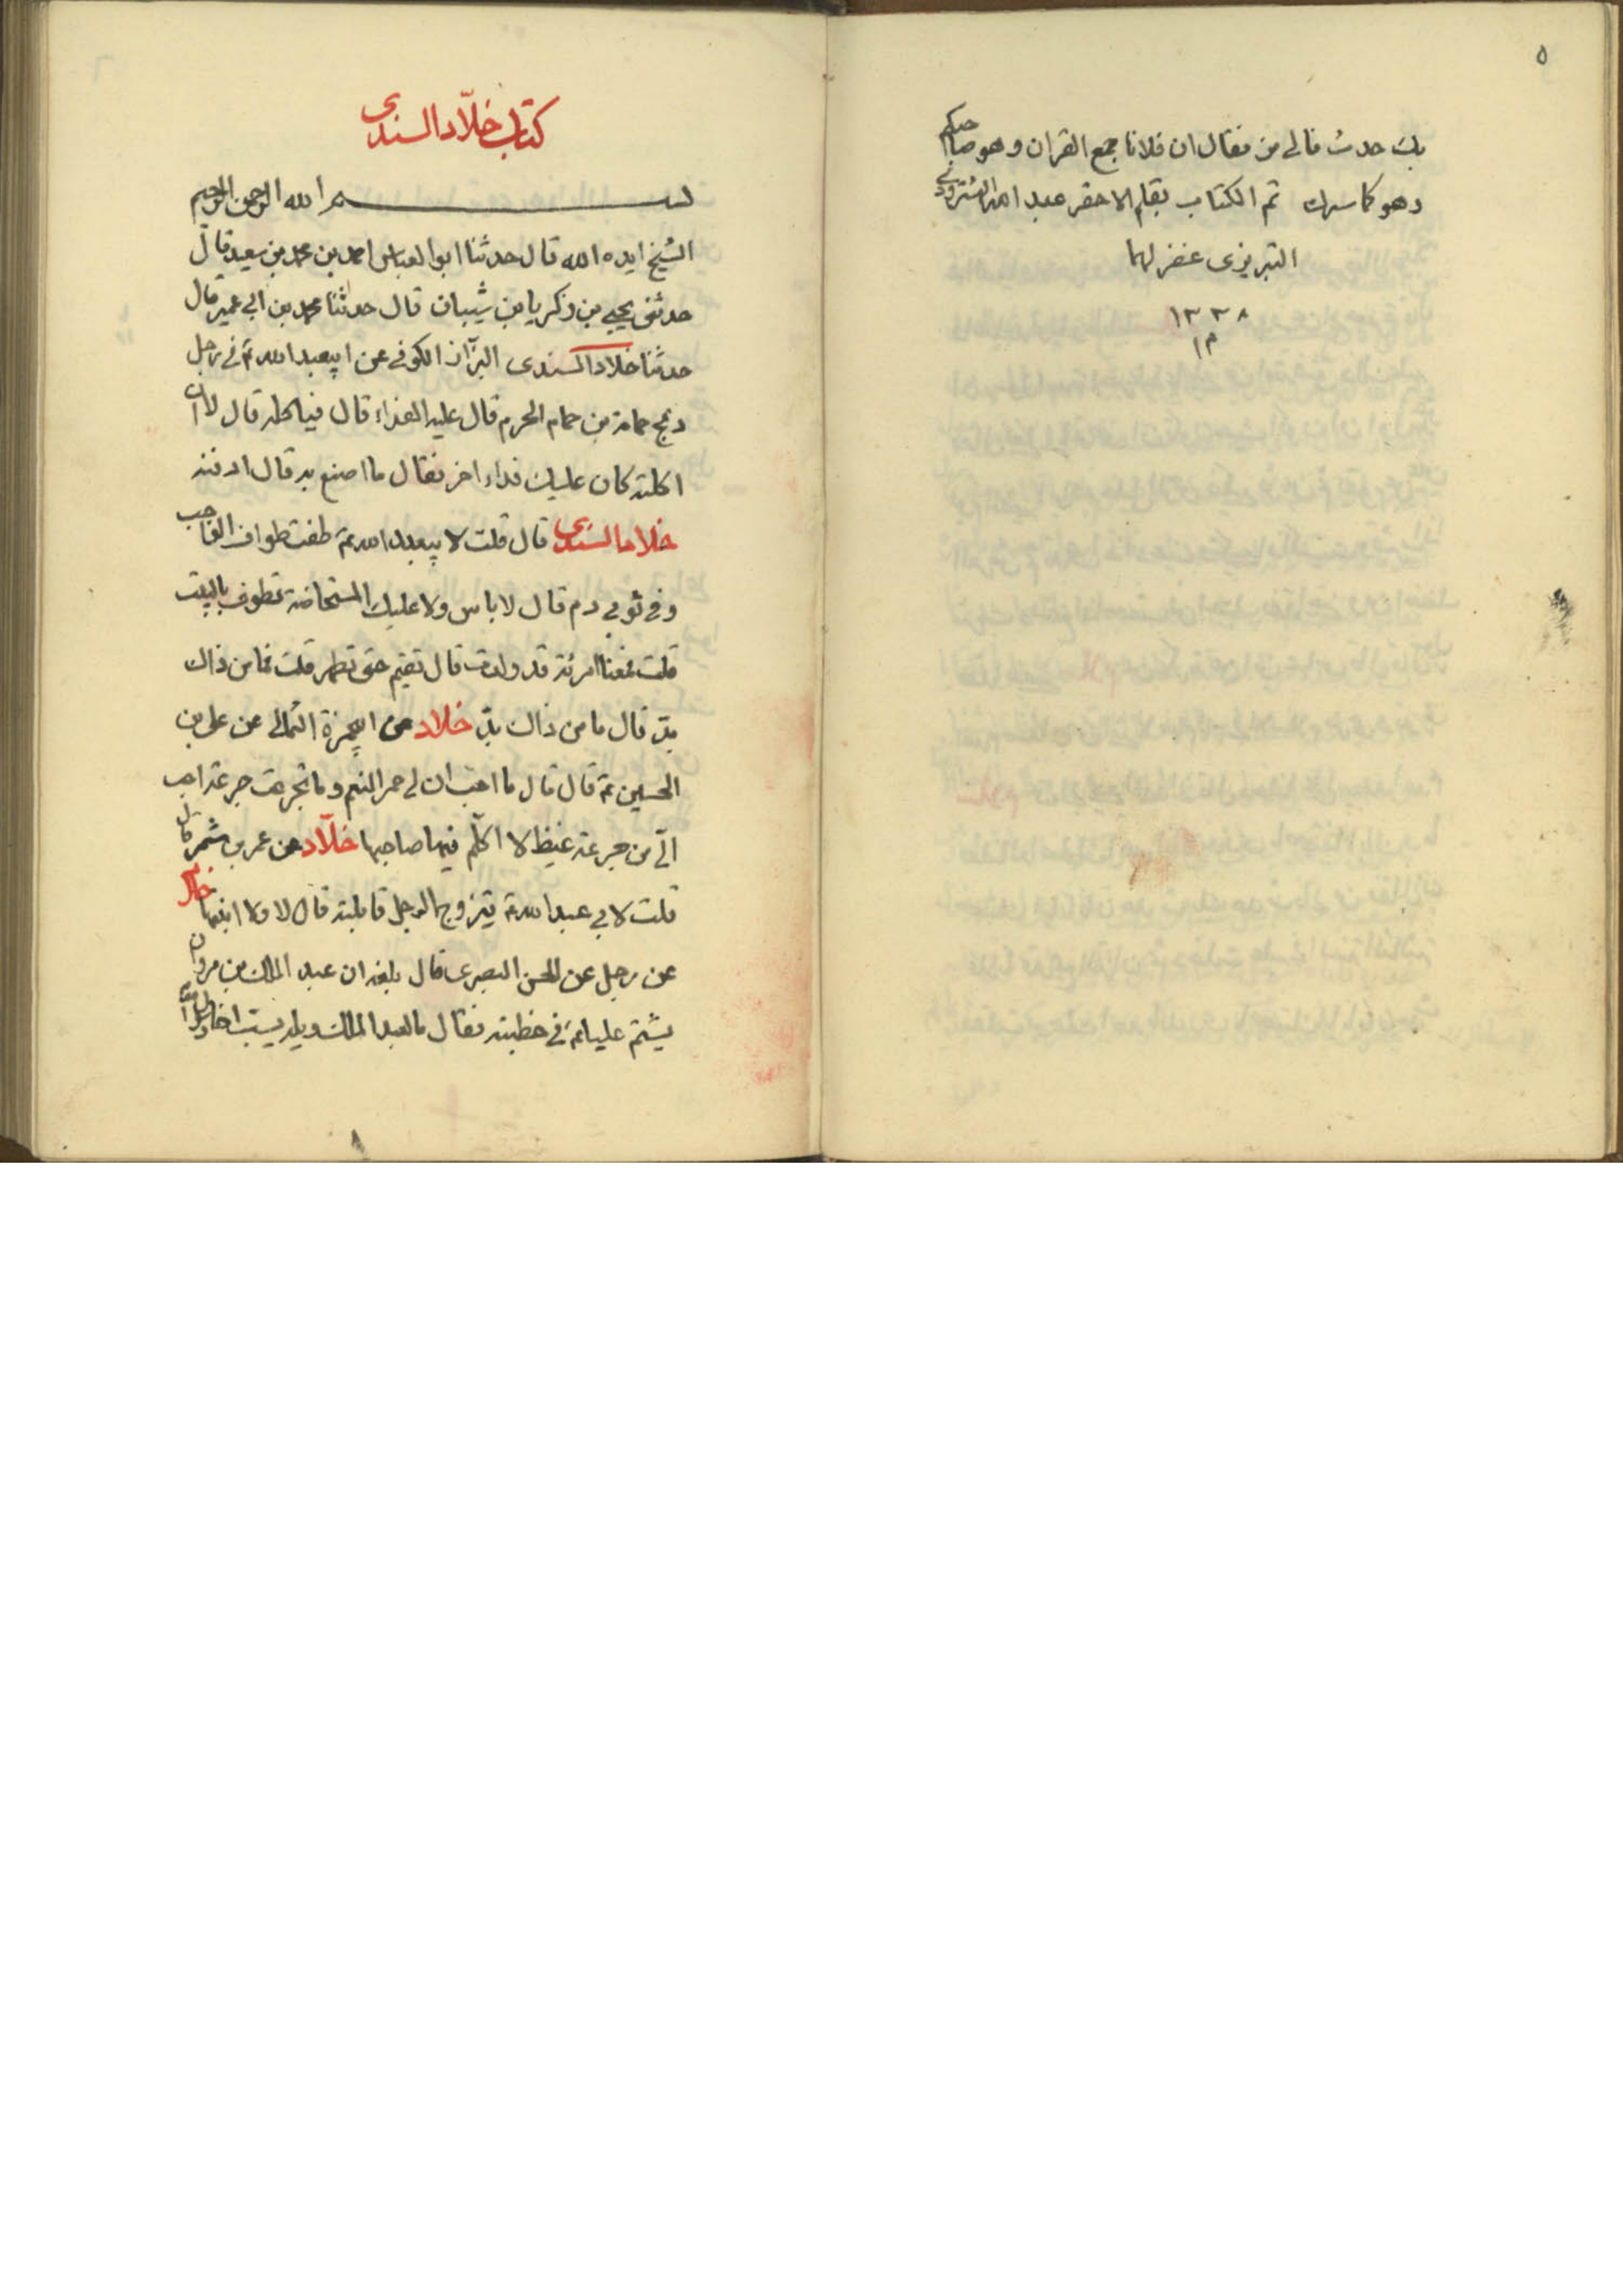 ٥
بك حدث فالى من فقال ان فلانا جمع القران وهو صاحبكم
وهو كاسرك تم الكتاب بقلم الاحقر عبد الله
التبريزى غفر لهما
١٣٣٨
كتاب خلّاد السندى
بسم الله الرحمن الرحيم
الشيخ ايده الله قال حدثنا ابو العباس احمد بن محمد بن سعيد قال
حدثنى يحيى بن زكريا بن شيبان قال حدثنا محمد بن ابي عمير قال
حدثنا خلاد السندى البزّاز الكوفى عن ابيعبد الله ع فى رجل
ذبح حمامة من حمام الحرم قال عليه الفداء قال فياكله قال لا ان
اكلته كان عليك فداء اخر فقال ما اصنع به قال ادفنه
خلاد السندى قال قلت لا بيعبد الله ع طفت طواف الواجب
وفى ثوبى دم قال لا باس ولا عليك المستحاضة تطوف بالبيت
قلت فمعنا امرئة قد ولدت قال تقيم حتى تطهر قلت فما من ذاك
بدّ قال ما من ذاك بدّ خلاد عن ابيحمزة الثمالى عن على بن
الحسين ع قال قال ما احب ان لى حمر النعم وما تجرعت جرعة احب
الىّ من جرعة غيظ لا اكلّم فيها صاحبها خلّاد عن عمر بن شمر قال
قلت لابى عبد الله ع يتزوج الرجل قابلته قال لا ولا ابنتها خلاد
عن رجل عن الحسن البصرى قال بلغه ان عبد الملك بن مروان
يشتم عليا ع فى خطبته فقال ما لعبد الملك ويله يسب اخا رسول الله